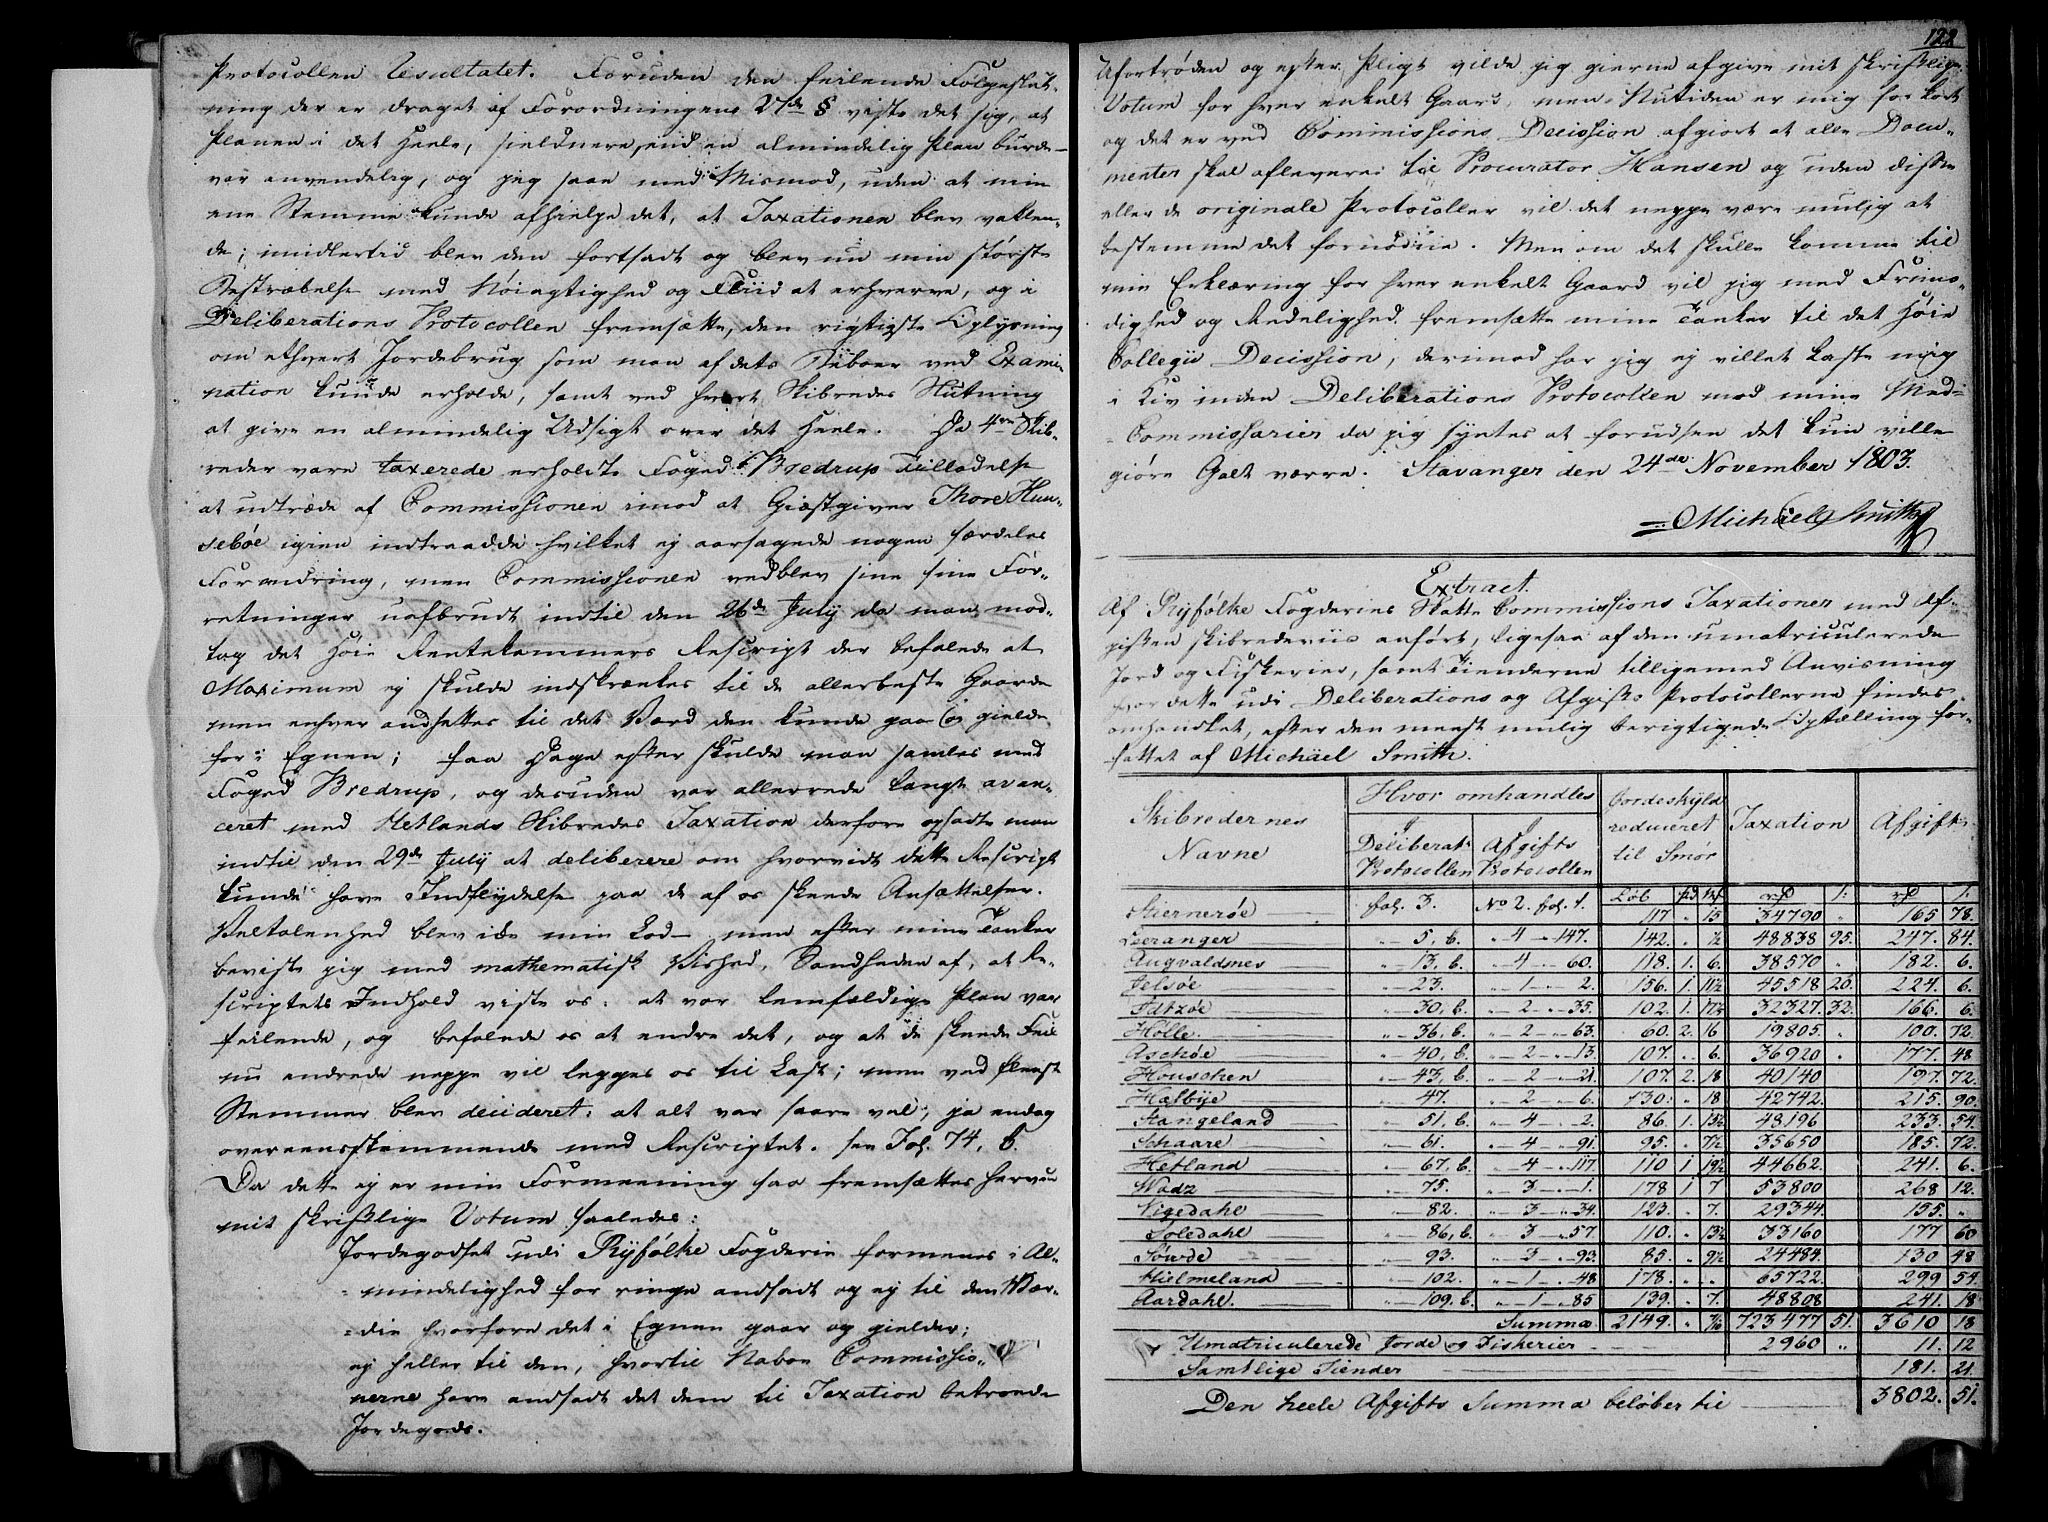 Protocollen Resultatet. Foruden den feilende Følgeslut-
ning der er draget af Forordningens 27de § viste det sig, at
Planen i det heele, sieldnere, end en almindelig Plan burde
var anvendelig, og jeg saae med Mismod, uden at min
ene Stemme kunde afhielpe det, at Taxationen blev vaklen-
de; imidlertid blev den fortsadt og blev nu min største
Bestræbelse med Nøiagtighed og Fliid at erhverve, og i
Deliberations Protocollen fremsætte, den rigtigste Oplysning
om ethvert Jordebrug som man af dets Beboer ved Exami-
nation kunde erholde, samt ved hvert Skibredes Slutning
at give en almindelig Udsigt over det heele. Da 4re Skib-
reder vare taxerede erholdte Foged Bredrup Tilladelse
at udtræde af Commissionen imod at Giæstgiver Thore Hun-
sebøe igien indtraadde hvilket ej aarsagede nogen særdeles
Forandring, men Commissionen vedblev sine For-
retninger uafbrudt indtil den 26de July da man mod-
tog det høie Rentekammers Rescript der befalede at
Maximum ej skulde indskrænkes til de allerbeste Gaarde
men enhver andsettes til det Værd den kunde gaae og gielde
for i Egnen; faa Dage efter skulde man samles med
Foged Bredrup, og desuden var allerrede langt avan-
ceret med Hetlands Skibredes Taxation derfore opsadte man
indtil den 29de July at deliberere om hvorvidt dette Rescript
kunde have Indflydelse paa de af os skeede Ansættelser.
Veltalenhed blev ikke min Lod men efter mine Tanker
beviste jeg med mathematisk Vished, Sandheden af, at Re-
scriptets Indhold viste os: at vor lemfældige Plan var
feilende, og befalede os at endre det, og at de skeede Feil
nu endrede neppe vil legges os til Last; men ved fleest
Stemmer blev decideret: at alt var saare vel, ja endog
overeensstemmende med Rescriptet. see Fol. 74, b.
Da dette ej er min Formeening saa fremsættes herved
mit skriftlige Votum saaledes:
Jordegodset udi Ryfølke Fogderie formenes i Al-
mindelighed for ringe andsadt og ej til den Vær-
die hvorfore det i Egnen gaar og gielder;
ej heller til den, hvortil Naboe Commissio-
nerne have andsadt det dem til Taxation betroede
Jordegods.
122
Ufortrøden og efter Pligt vilde jeg gierne afgive mit skriftlige
Votum for hver enkelt Gaard, men Nutiden er mig for kort
og det er ved Commissions Decission afgiort at alle Docu-
menter skal afleveres til Procurator Hansen og uden disse
eller de originale Protocoller vil det neppe være mulig at
bestemme det fornødne. Men om det skulle komme til
min Erklæring for hver enkelt Gaard vil jeg med Frimo-
dighed og Redelighed fremsætte mine Tanker til det høie
Collegii Decission, derimod har jeg ej villet kaste mig
i Kiv inden Deliberations Protocollen mod mine Med-
Commissarier da jeg syntes at forudsee det kun ville
giøre Galt værre. Stavanger den 24de November 1803.
Michael Smith
Extract.
Af Ryfølke Fogderies Skatte Commissions Taxationer med Af-
giften skibredeviis anført, ligesaa af den umatriculerede
Jord og Fiskerier, samt Tienderne tilligemed Anvisning
hvor dette udi Deliberations og Afgifts Protocollerne findes
omhandlet, efter den meest mulig berigtigede Optælling for-
fattet af Michäel Smith.
Skibredernes Navne | Hvor omhandles | Jordeskyld reduceret til Smør | Taxation | Afgift
Deliberat: Protocollen | Afgifts Protocollen
Løb pd mk | rd s: | rd s.
Stiernerøe fol. 3. No 2. fol. 1. 117 " 15 34790 " 165 78.
Leeranger " 5, b. " 4 " 147. 142. " ½ 48838 95. 247. 84.
Augvaldsnes " 13, b. " 4 " 60. 118. 1. 6. 38570 " 182. 6.
Jelsøe " 23. " 1 " 2. 156. 1 11½ 45518 26. 224. 6.
Idtzøe " 30, b. " 2 " 35. 102. 1. 17½ 32327. 32. 166. 6.
Holle " 36, b. " 2 " 63. 60. 2. 16 19805. " 100. 72.
Aschøe " 40, b. " 2 " 13. 107. " 6. 36920 " 177. 48
Houschen " 43, b. " 2 " 21. 107. 2. 18 40140 197. 72.
Hælbye " 47. " 2 " 6. 130. " 18 42742. 215. 90.
Stangeland " 51, b. " 4 " 2. 86. 1. 13½ 48196 233. 54.
Schaare " 61. " 4 " 91. 95. " 7½ 35650 185. 72.
Hetland " 67, b. " 4 " 117. 110 1 19½ 44662. 241. 6.
Wadz " 75. " 3 " 1. 178 1 7 53800 268 12.
Vigedahl " 82. " 3 " 34. 123. " 7. 29344. 155. "
Soledahl " 86, b. " 3 " 57. 110. " 13½ 33160 177 60
Søvde " 93. " 3 " 93. 85. " 9½ 24484. 130 48
Hielmeland " 102. " 1 " 48 178. " " 65722. 299 54.
Aardahl. " 109, b. " 1 " 85 139. " 7. 48808 241. 18
Summa 2149. " 723477 51. 3610 18
Umatriculerede Jorde og Fiskerier 2960 " 11. 12
Samtlige Tiender 181. 21.
Den heele Afgifts Summa beløber til 3802. 51.